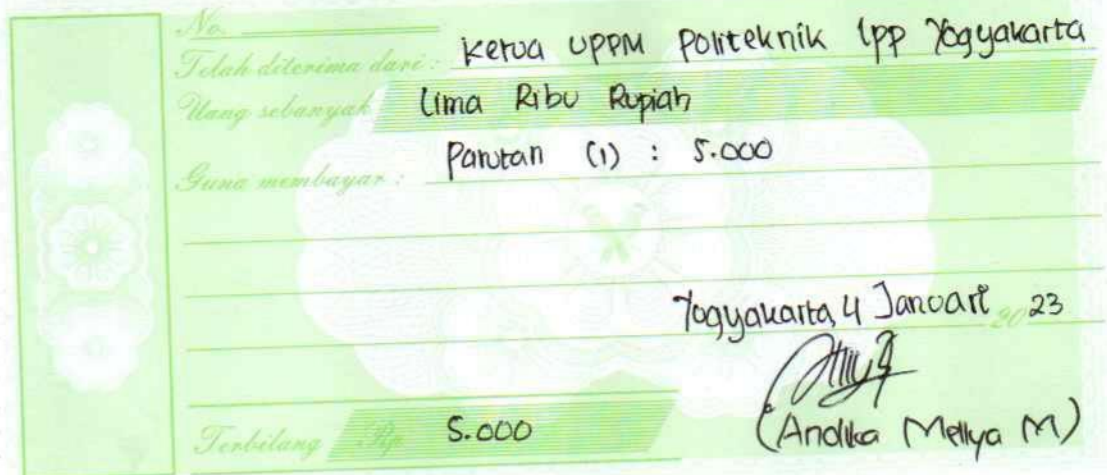 No.
Telah diterima dari : Ketua UPPM Politeknik LPP Yogyakarta
Uang sebanyak Lima Ribu Rupiah
Guna membayar : Parutan (1) : 5.000
Yogyakarta, 4 Januari 20 23
Terbilang Rp 5.000
(Andika Mellya M)